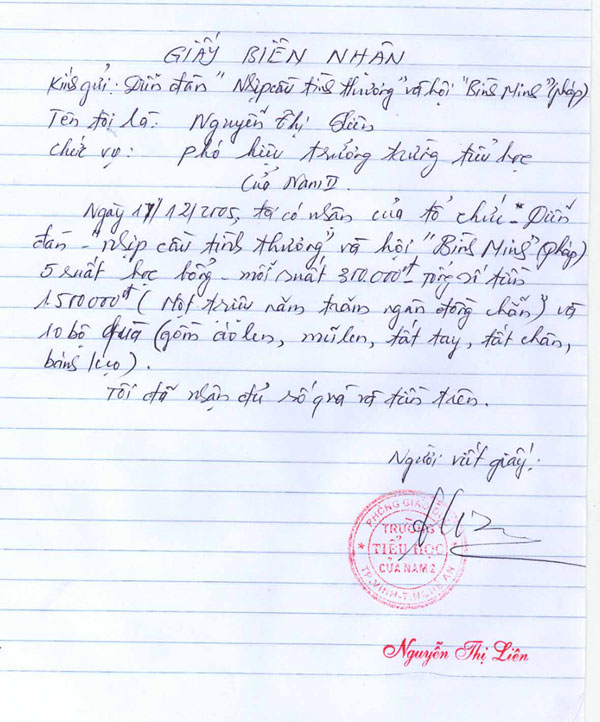 GIẤY BIÊN NHẬN
Kính gửi: Diễn đàn "Nhịp cầu tình thương" và hội "Bình Minh" (pháp)
Tên tôi là: Nguyễn Thị Liên
Chức vụ: phó hiệu trưởng trường tiểu học
Cửa Nam II.
Ngày 17/12/2005, tôi có nhận của tổ chức - Diễn
đàn - "Nhịp cầu tình thương" và hội "Bình Minh" (pháp)
5 suất học bổng - mỗi suất 300.000đ - Tổng số tiền
1500000đ (Một triệu năm trăm ngàn đồng chẵn) và
10 bộ quà (gồm áo len, mũ len, tất tay, tất chân,
bánh kẹo).
Tôi đã nhận đủ số quà và tiền trên.
Người viết giấy:
PHÒNG GIÁO
TRƯỜNG
TIỂU HỌC
CỬA NAM 2
TP.VINH-T.NGHỆ AN
Nguyễn Thị Liên